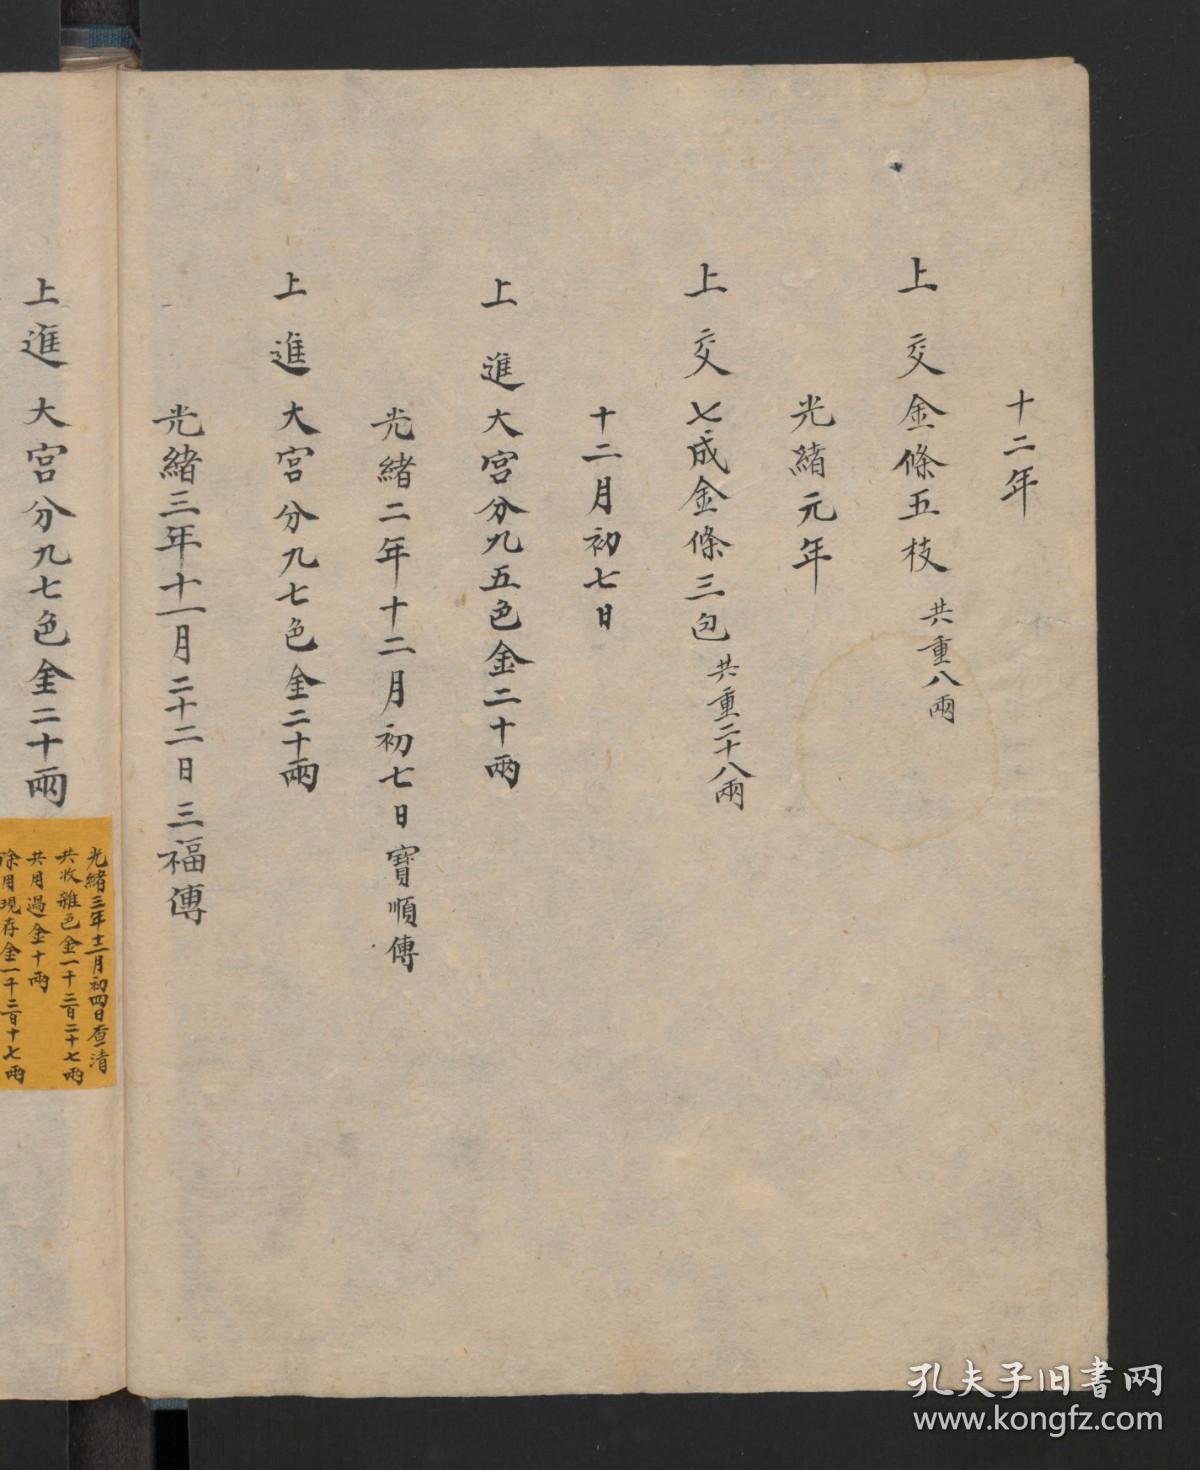 十二年
上交金條五枝 共重八兩
光緒元年
上交七成金條三包 共重二十八兩
十二月初七日
上進大宮分九五色金二十兩
光緒二年十二月初七日寶順傳
上進大宮分九七色金二十兩
光緒三年十一月二十二日三福傳
上進大宮分九七色金二十兩
光緒三年十二月初四日查清
共收雜色金一千二百二十七兩
共用過金十兩
除用現存金一千二百十七兩
孔夫子旧書网
www.kongfz.com